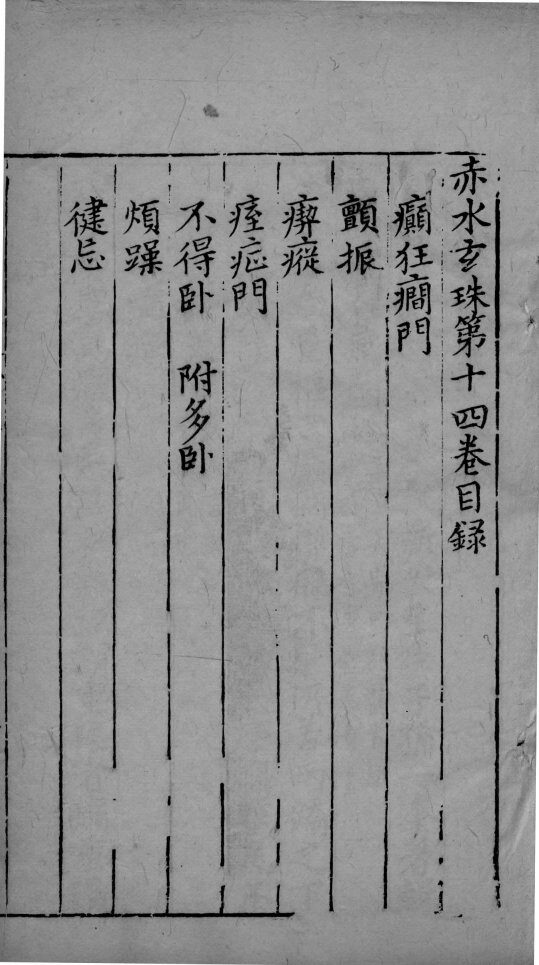 赤水玄珠第十四卷目録
癲狂癇門
顫振
瘈瘲
痓疝門
不得卧 附多卧
煩躁
健忘